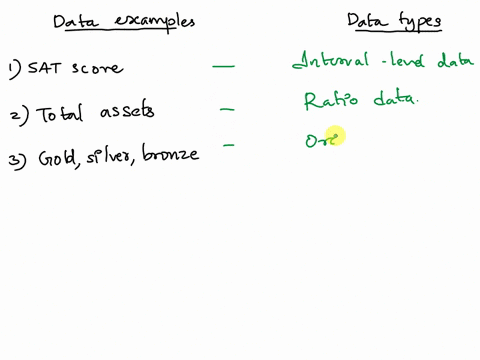 Data examples Data types
1) SAT score — Interval-level data
2) Total assets — Ratio data.
3) Gold, silver, bronze — Or